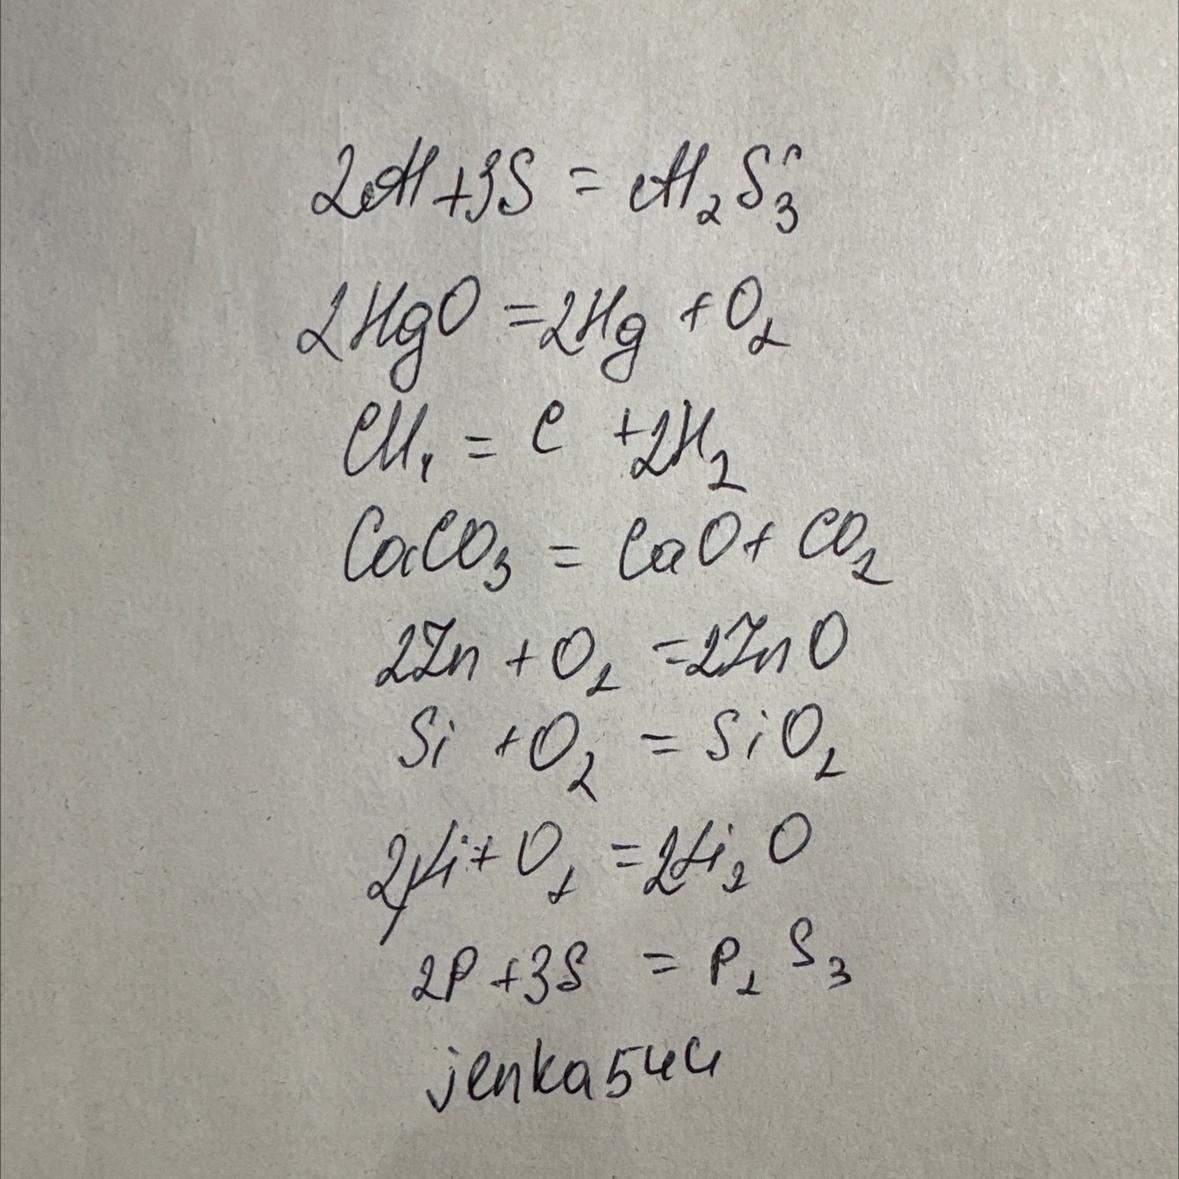 2Al+3S = Al₂S₃
2HgO = 2Hg + O₂
CH₄ = C + 2H₂
CaCO₃ = CaO + CO₂
2Zn + O₂ = 2ZnO
Si + O₂ = SiO₂
24Li + O₂ = 2Li₂O
2P + 3S = P₂S₃
jenka544